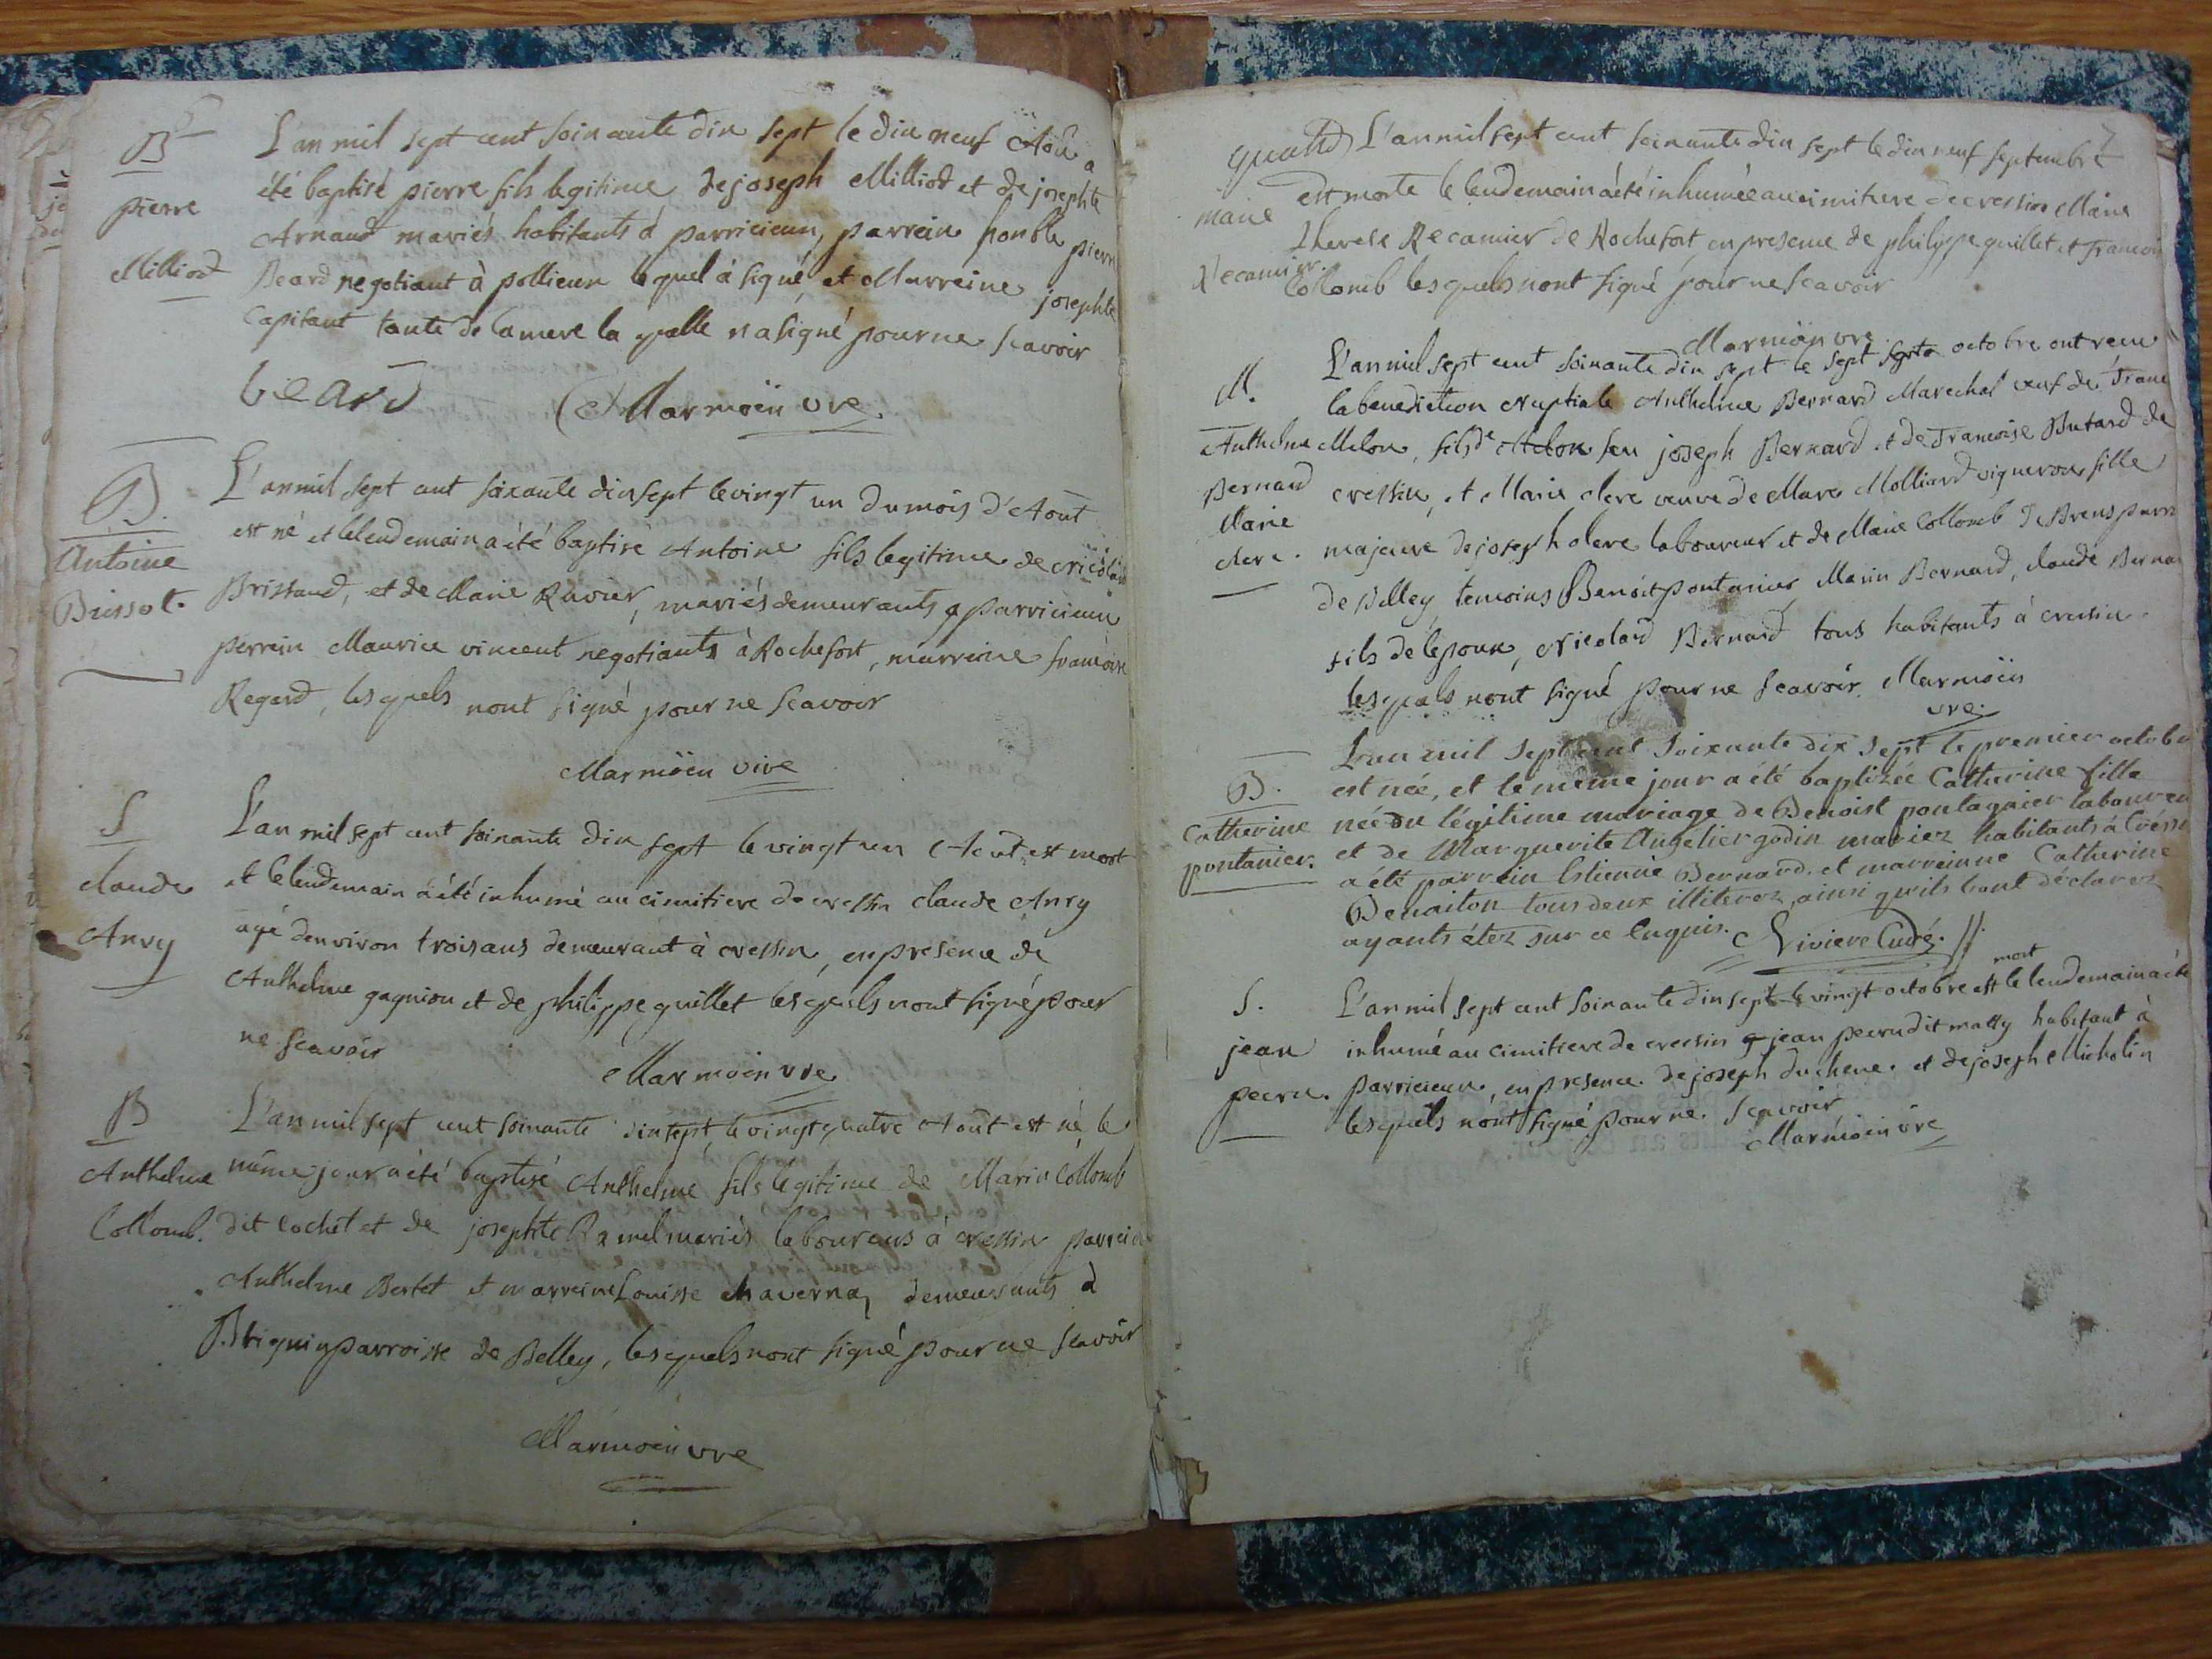 6
B
pierre
Milliod
L'an mil sept cent soixante dix sept le dix neuf Aôu a
été baptisé pierre fils legitime de joseph Milliod et de josephte
Arnaud mariés habitants à parricieux, parrein honble pierre
Beard négotiant à pollieux lequel à signé et Marreine josephte
Capitant tante de la mere la qu'elle n'a signé pour ne scavoir
beard Marmoën vre
B.
Antoine
Brissot.
L'an mil sept cent soixante dix sept le vingt un du mois d'Aout
est né et le lendemain a été baptisé Antoine fils legitime de Nicolas
Brissaud, et de Marie Ravier, mariés demeurants a parricieux
perrein Maurice vincent negotiants à Rochefort, marreine francoise
Regard, lesquels n'ont signé pour ne scavoir
Marmoën vive
S
claude
Anry
L'an mil sept cent soixante dix sept le vingt un Aout est mort
et le lendemain a été inhumé au cimitiere de cressin claude Anry
agé denviron trois ans demeurant à cressin, en presence de
Anthelme gagnion et de philippe guillet lesquels n'ont signé pour
ne scavoir
Marmoën vre
B
Anthelme
Collomb.
L'an mil sept cent soixante dix sept le vingt quatre Aout est né, le
même jour a été baptisé Anthelme fils légitime de Marin Collomb
dit cochet et de josephte Ramel mariés laboureurs à cressin parrein
Anthelme Bertet et marreine Louise chavernay demeurants à
Brignin parroisse de Belley, lesquels n'ont signé pour ne scavoir
Marmoën vre
7
marie
Recamier.
L'an mil sept cent soixante dix sept le dix neuf septembre
est morte le lendemain a été inhumée au cimitiere de cression Marie
therese Recamier de Rochefort, en presence de philippe guillet et francois
Collomb lesquels n'ont signé pour ne scavoir
Marmoën vre
M.
Anthelme
Bernard
Marie
clerc.
L'an mil sept cent soixante dix sept le sept octobre ont recu
la benediction Nuptiale Anthelme Bernard Marechal veuf de franc
Melon, fils de feu joseph Bernard et de francoise Butard de
cressin, et Marie clerc veuve de Marc Molliard vigneron fille
majeure de joseph clerc laboureur et de Marie Collomb de Brens parr
de Belley, temoins Benoit pontanier Marin Bernard, claude Bernard
fils de lepoux, Nicolard Bernard tous habitants à cressin.
lesquels n'ont signé pour ne scavoir Marmoën
vre.
B.
Catherine
pontanier.
L'an mil sept cent soixante dix sept le premier octobre
est née, et le meme jour a été baptizée Catherine fille
née du légitime mariage de Benoist pontagnier laboureur
et de Marguerite Angelier godin mariez habitants à Cressin
a été parrein Estienne Bernard. et marreinne Catherine
Benaiton tous deux illiterez, ainsi qu'ils l'ont déclarez
ayants étez sur ce Enquis. Riviere Curé. //.
S.
jean
pecru.
mort
L'an mil sept cent soixante dix sept le vingt octobre est le lendemain a été
inhumé au cimitiere de cressin jean pecru dit matty habitant à
parricieux, en presence de joseph duchene. et de joseph Micholin
lesquels n'ont signé pour ne scavoir
Marmoën vre